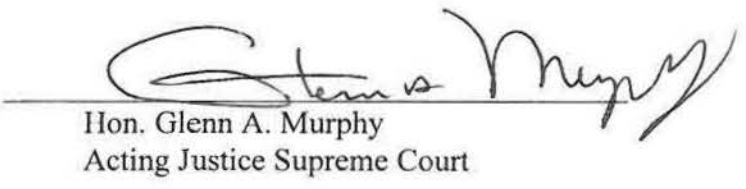 Glenn A Murphy
Hon. Glenn A. Murphy
Acting Justice Supreme Court